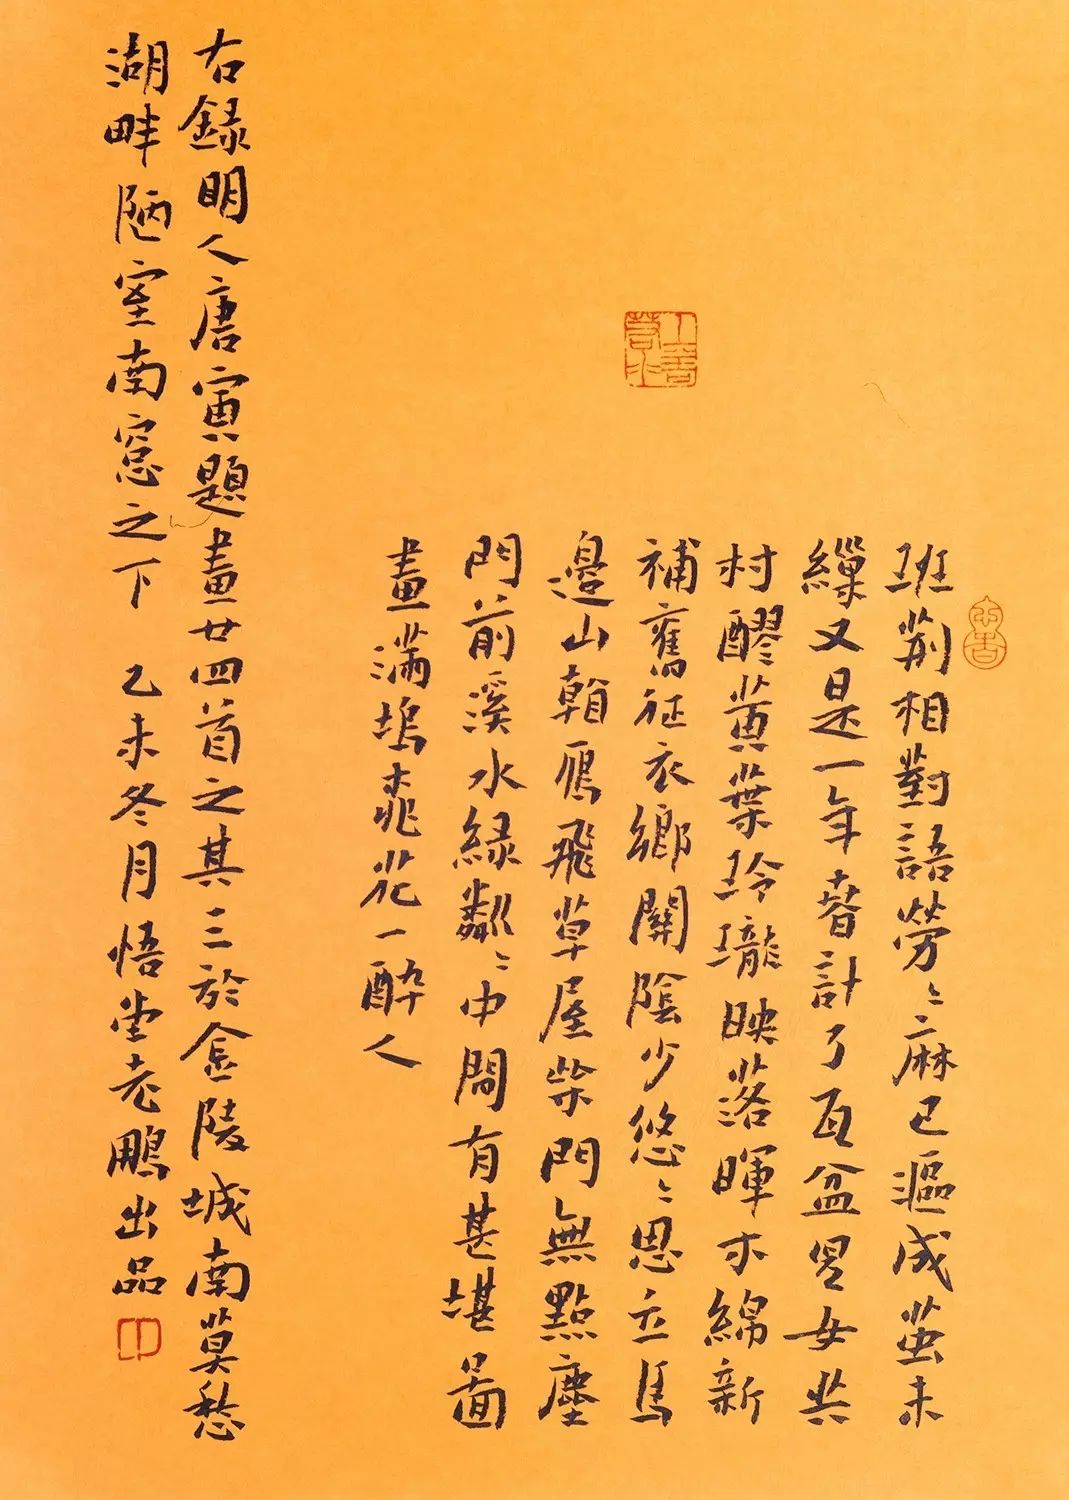 班荊相對語勞〻麻已漚成茧未
繅又是一年春計了瓦盆兒女共
村醪黄葉玲瓏映落暉木綿新
補舊征衣鄉關陰少悠〻思立馬
邊山朝雁飛草屋柴門無點塵
門前溪水緑粼〻中間有甚堪圖
畫滿塢桃花一醉人
上善若水
右録明人唐寅題畫廿四首之其三於金陵城南莫愁
湖畔陋室南窓之下 乙未冬月悟堂老鵬出品